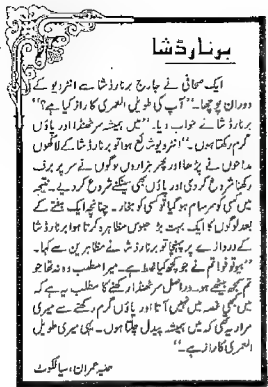 برنارڈ شا
ایک صحافی نے جارج برنارڈ شا سے انٹرویو کے
دوران پوچھا۔ "آپ کی طویل العمری کا راز کیا ہے؟"
برنارڈ شا نے جواب دیا۔ "میں ہمیشہ سر ٹھنڈا اور پاؤں
گرم رکھتا ہوں۔" انٹرویو شائع ہوا تو برنارڈ شا کے لاکھوں
مداحوں نے پڑھا اور پھر ہزاروں لوگوں نے سر پر برف
رکھنا شروع کر دی اور پاؤں بھی سینکنے شروع کر دیے۔ نتیجے
میں کسی کو سرسام ہو گیا تو کسی کو بخار۔ چنانچہ ایک ہفتے کے
بعد لوگوں کا ایک بہت بڑا جلوس مظاہرہ کرتا ہوا برنارڈ شا
کے دروازے پر پہنچا تو برنارڈ شا نے مظاہرین سے کہا۔
"بیوقوفو! تم نے جو کچھ کیا غلط ہے۔ میرا مطلب وہ نہ تھا جو
تم سمجھ بیٹھے ہو۔ دراصل سر ٹھنڈا رکھنے کا مطلب یہ ہے کہ
میں کبھی غصہ میں نہیں آتا اور پاؤں گرم رکھنے سے میری
مراد یہ تھی کہ میں ہمیشہ پیدل چلتا ہوں۔ یہی میری طویل
العمری کا راز ہے۔"
عمران، سیالکوٹ